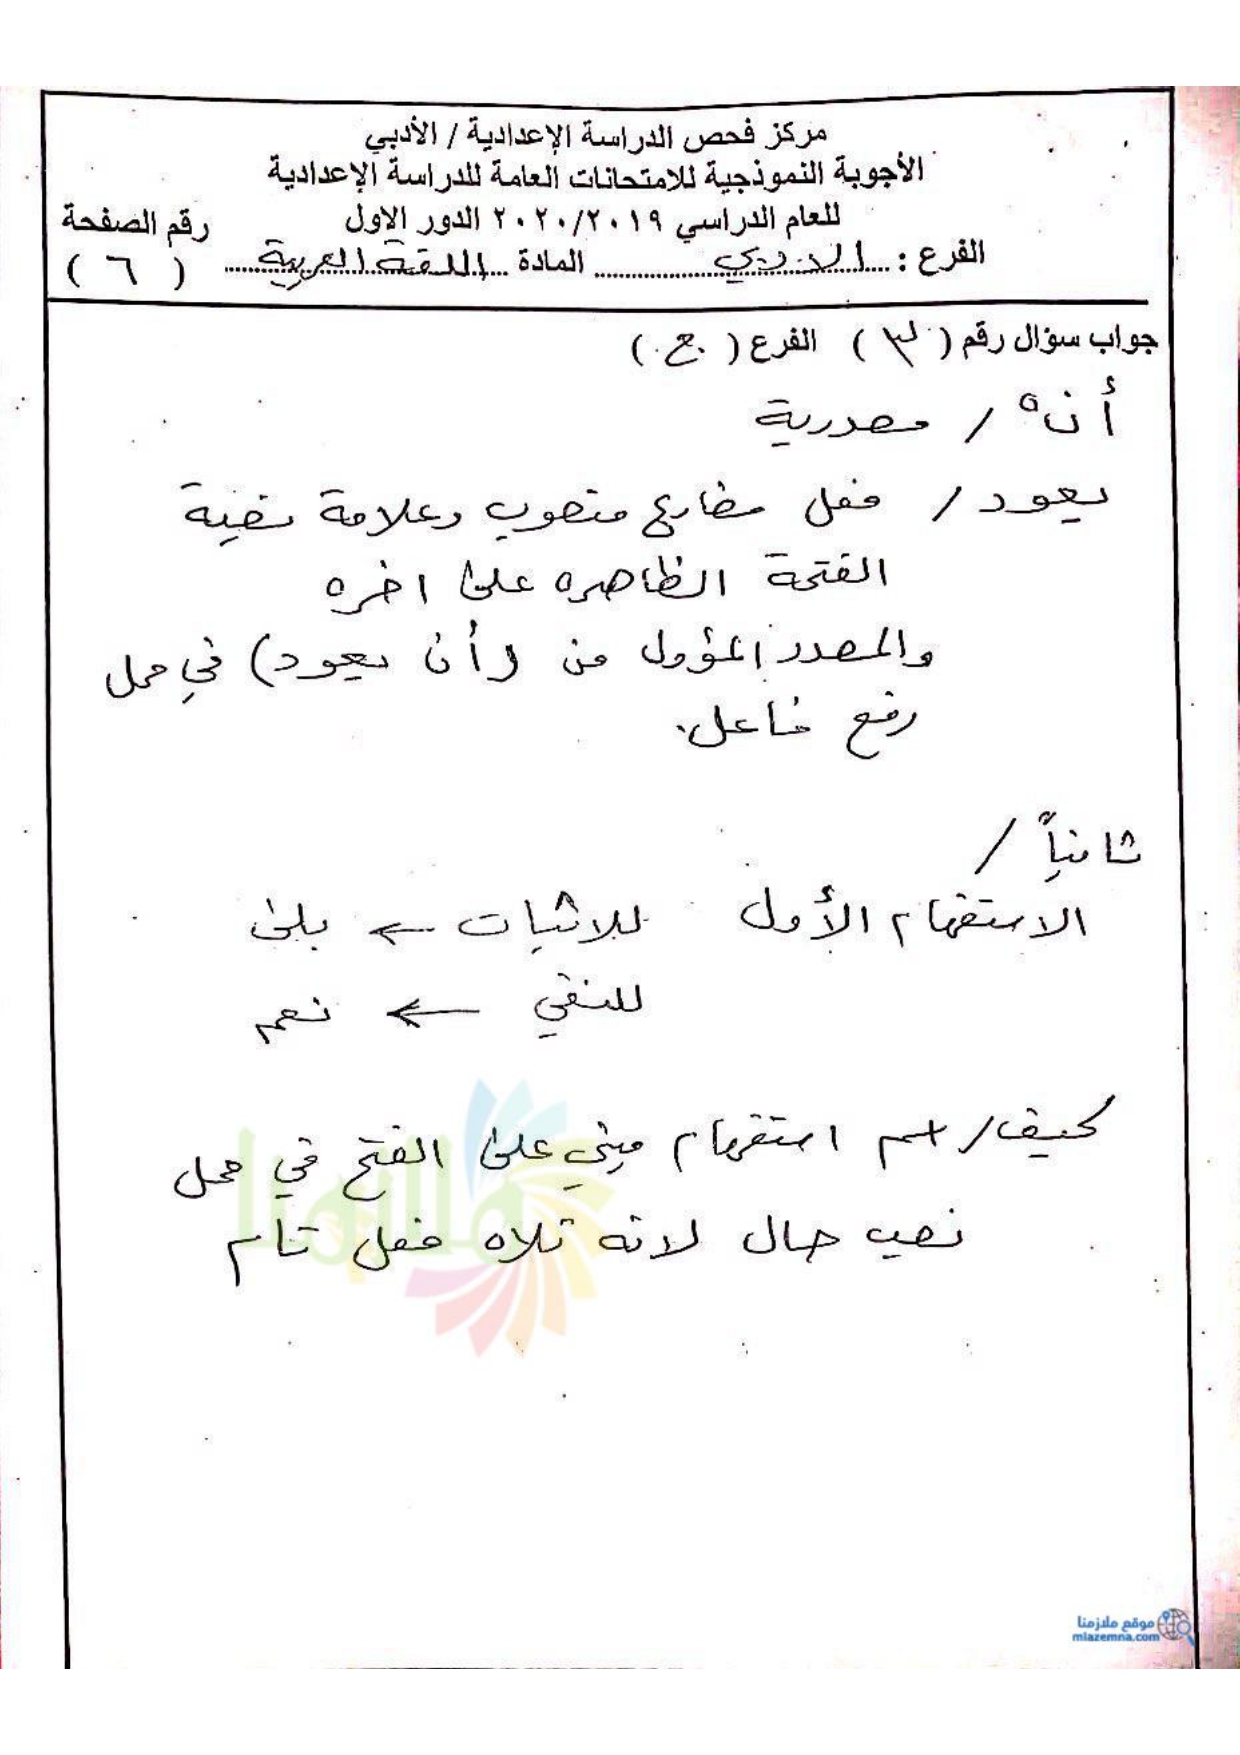 مركز فحص الدراسة الإعدادية / الأدبي
الأجوبة النموذجية للامتحانات العامة للدراسة الإعدادية
للعام الدراسي ٢٠٢٠/٢٠١٩ الدور الاول
رقم الصفحة
الفرع : الادبي المادة اللغة العربية ( ٦ )
جواب سؤال رقم ( ٣ ) الفرع ( ج )
أنْ / مصدرية
يعود / فعل مضارع منصوب وعلامة نصبه
الفتحة الظاهره على اخره
والمصدر المؤول من (أن يعود) في محل
رفع فاعل.
ثانياً /
الاستفهام الأول للاثبات ← بلى
للنفي ← نعم
كيف / اسم استفهام مبني على الفتح في محل
نصب حال لانه تلاه فعل تام
ملازمنا
موقع ملازمنا
mlazemna.com